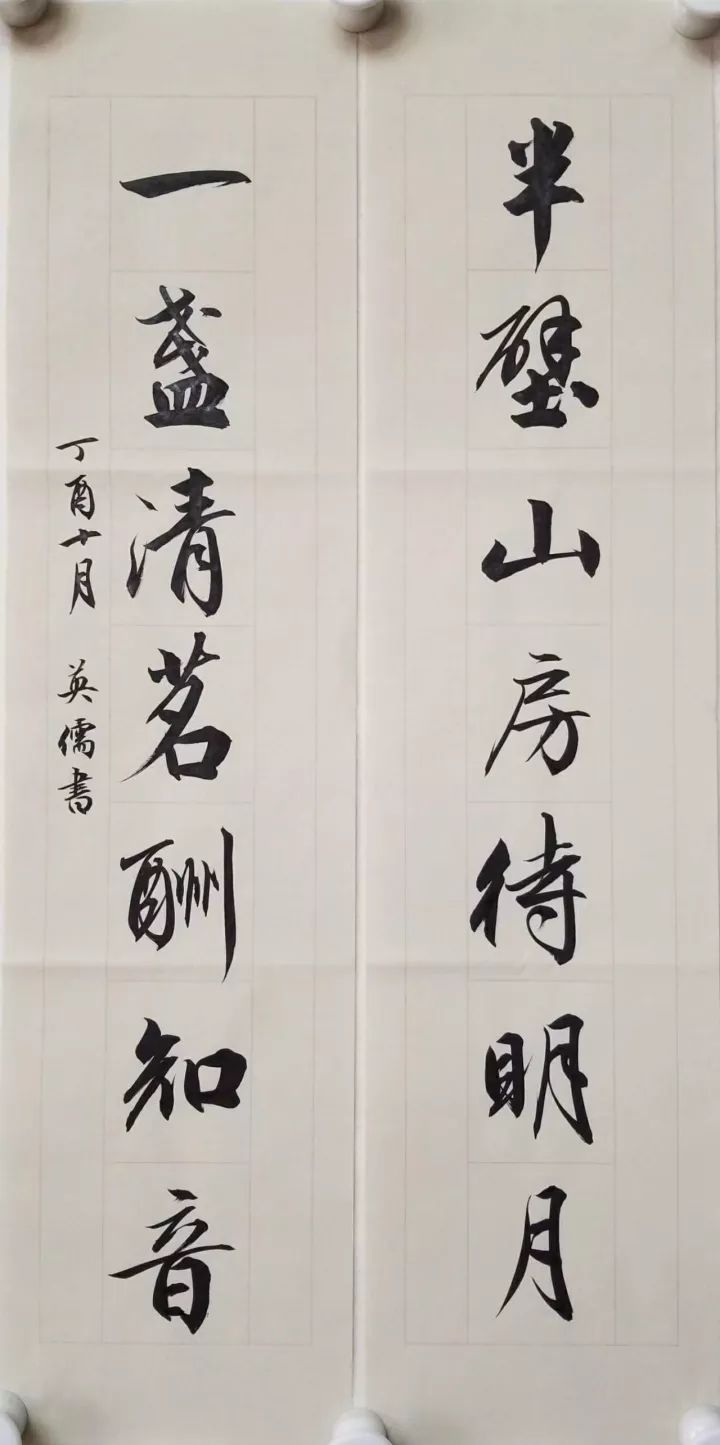 半壁山房待明月
一盏清茗酬知音
丁酉十月 英儒書